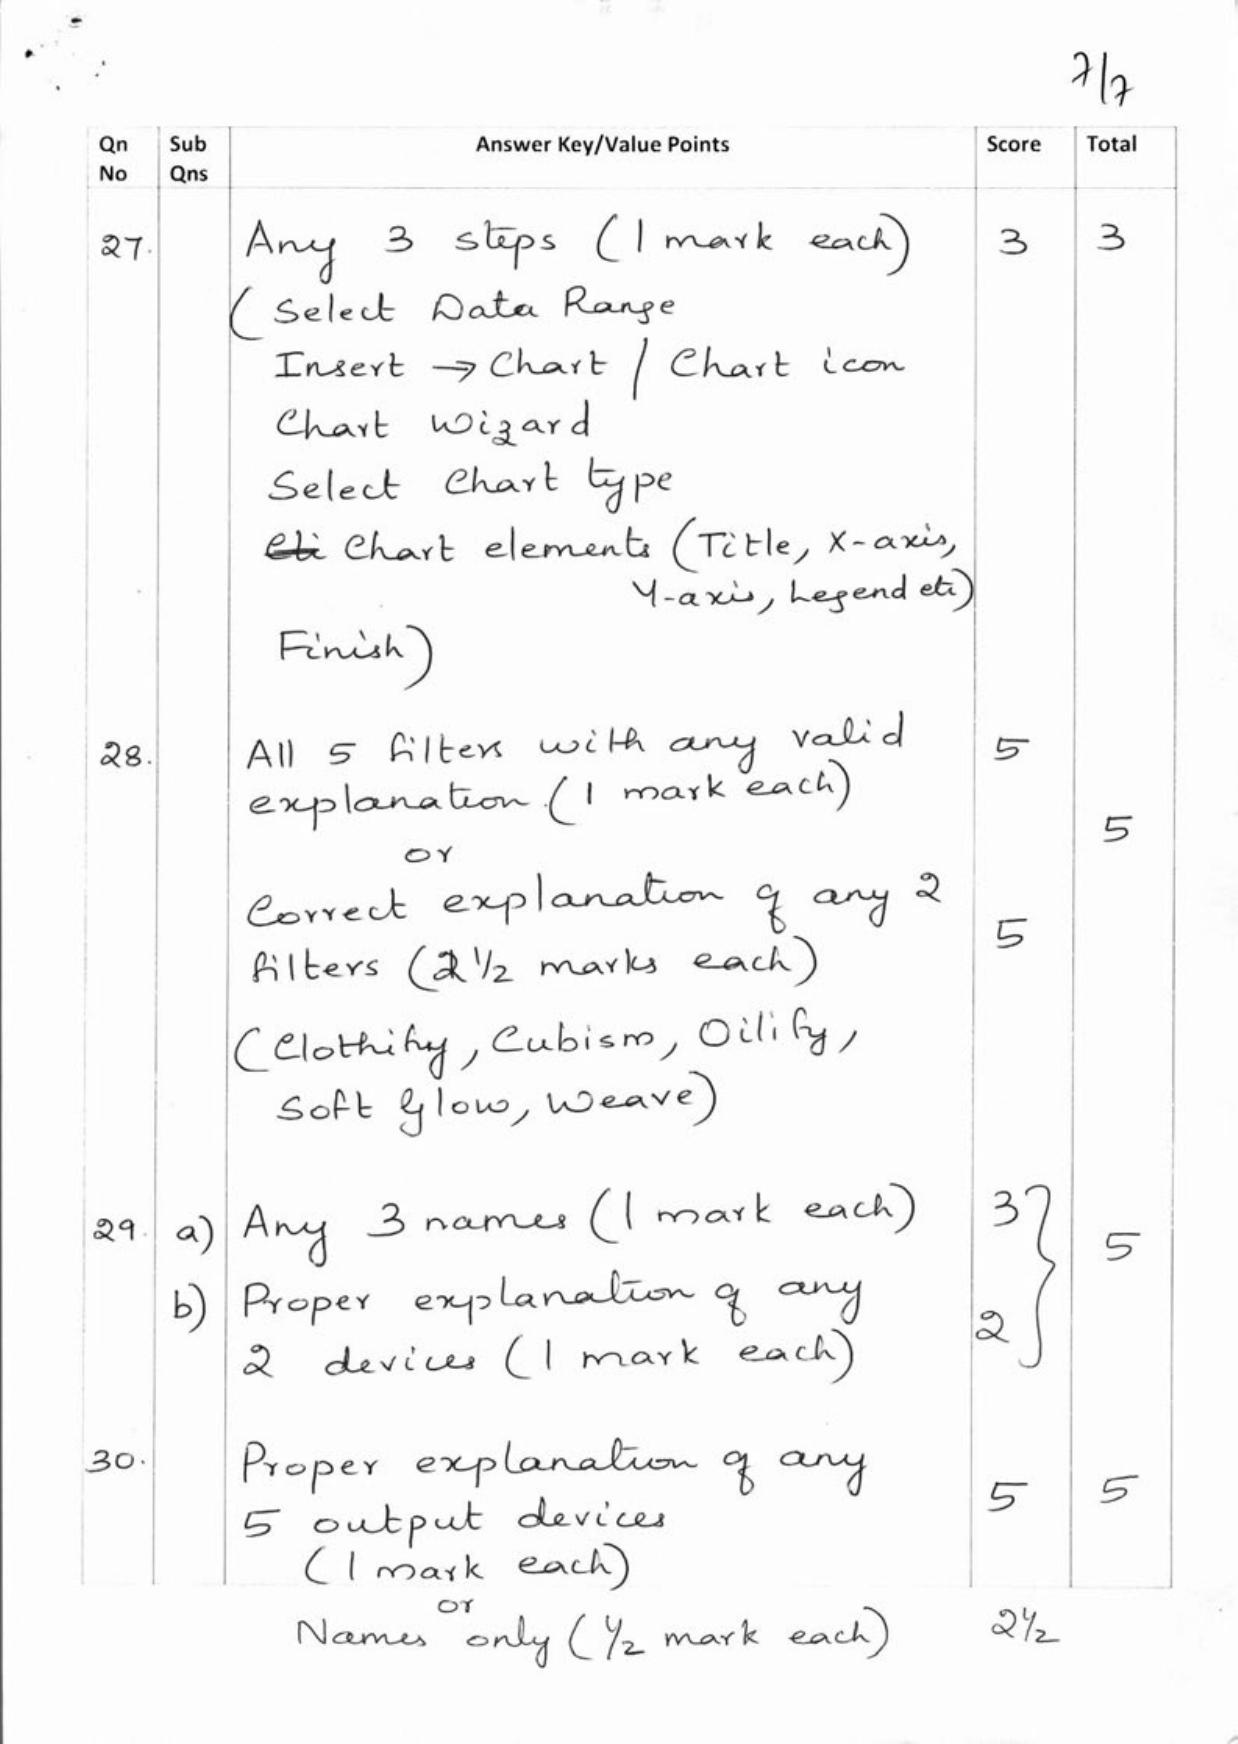 7/7
Qn No Sub Qns Answer Key/Value Points Score Total
27. Any 3 steps (1 mark each) 3 3
(Select Data Range
Insert → Chart / Chart icon
Chart Wizard
Select Chart type
Chart elements (Title, X-axis,
Y-axis, Legend etc)
Finish)
28. All 5 filters with any valid 5
explanation (1 mark each)
5
or
Correct explanation of any 2
filters (2 1/2 marks each) 5
(Clothify, Cubism, Oilify,
Soft Glow, Weave)
29. a) Any 3 names (1 mark each) 3 } 5
b) Proper explanation of any 2
2 devices (1 mark each)
30. Proper explanation of any
5 output devices 5 5
(1 mark each)
or
Names only (1/2 mark each) 2 1/2